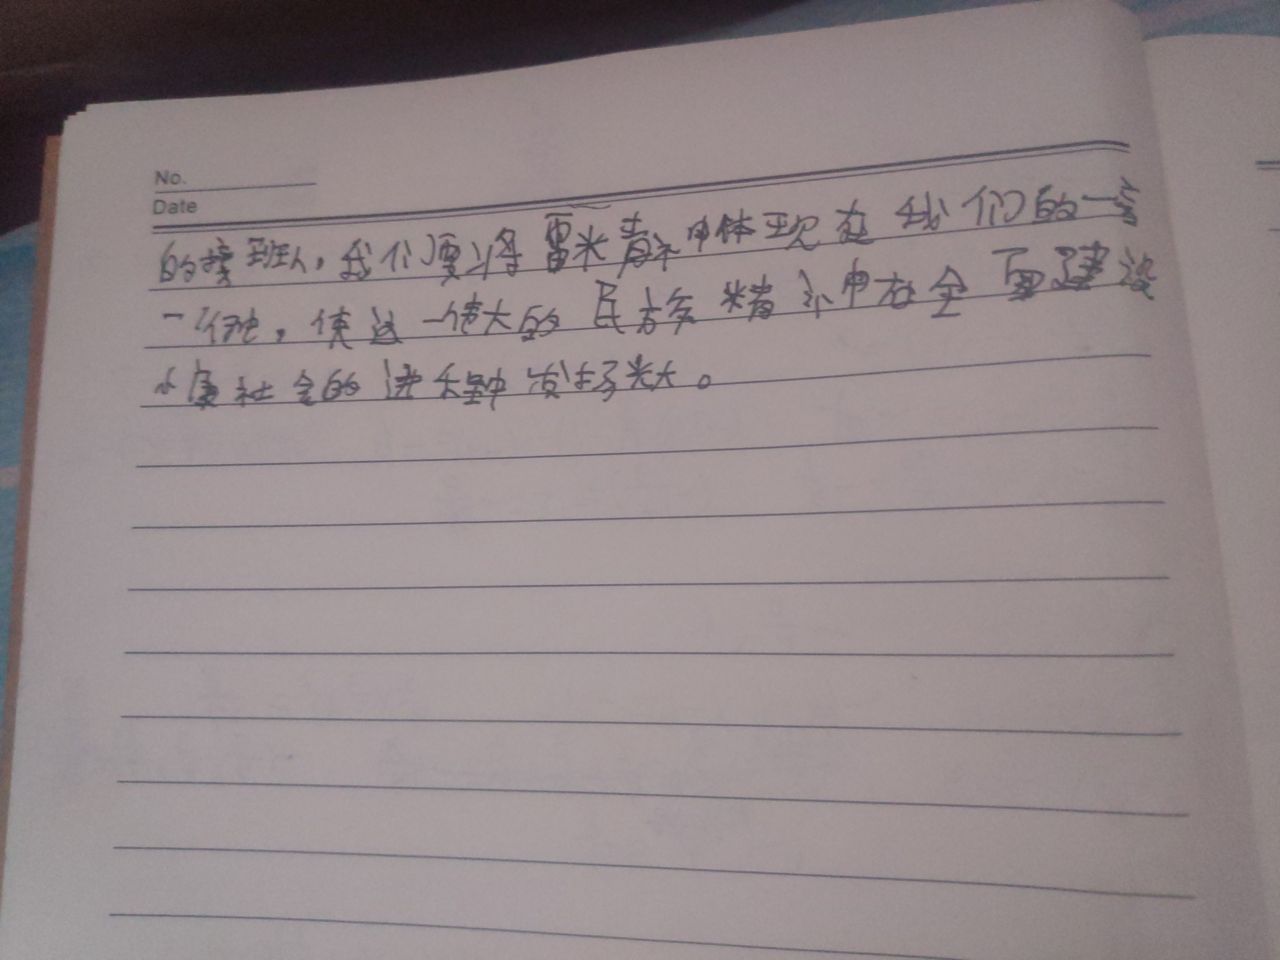 No.
Date
的接班人，我们要将雷米精神体现在我们的一言
一行，使这一伟大的民族精神在全面建设
小康社会的进程中发扬光大。